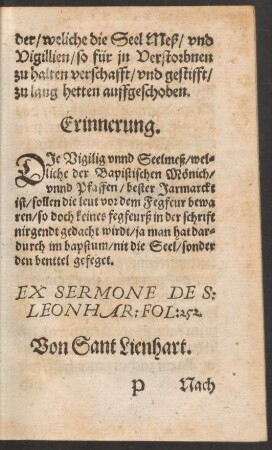 der/weliche die Seel Meß/ vnd
Vigillien/so für in Verstorbnen
zu halten verschafft/vnd gestifft/
zu lang hetten auffgeschoben.
Erinnerung.
DJe Vigilig vnnd Seelmeß/wel-
liche der Bapistischen Mönich/
vnnd Pfaffen/ bester Jarmarckt
ist/sollen die leut vor dem Fegfeur bewa
ren/so doch keines fegfeurß in der schrift
nirgendt gedacht wirdt/ja man hat dar-
durch im bapstum/nit die Seel/sonder
den benttel gefeget.
EX SERMONE DE S:
LEONHAR: FOL:252.
Von Sant Lienhart.
P Nach